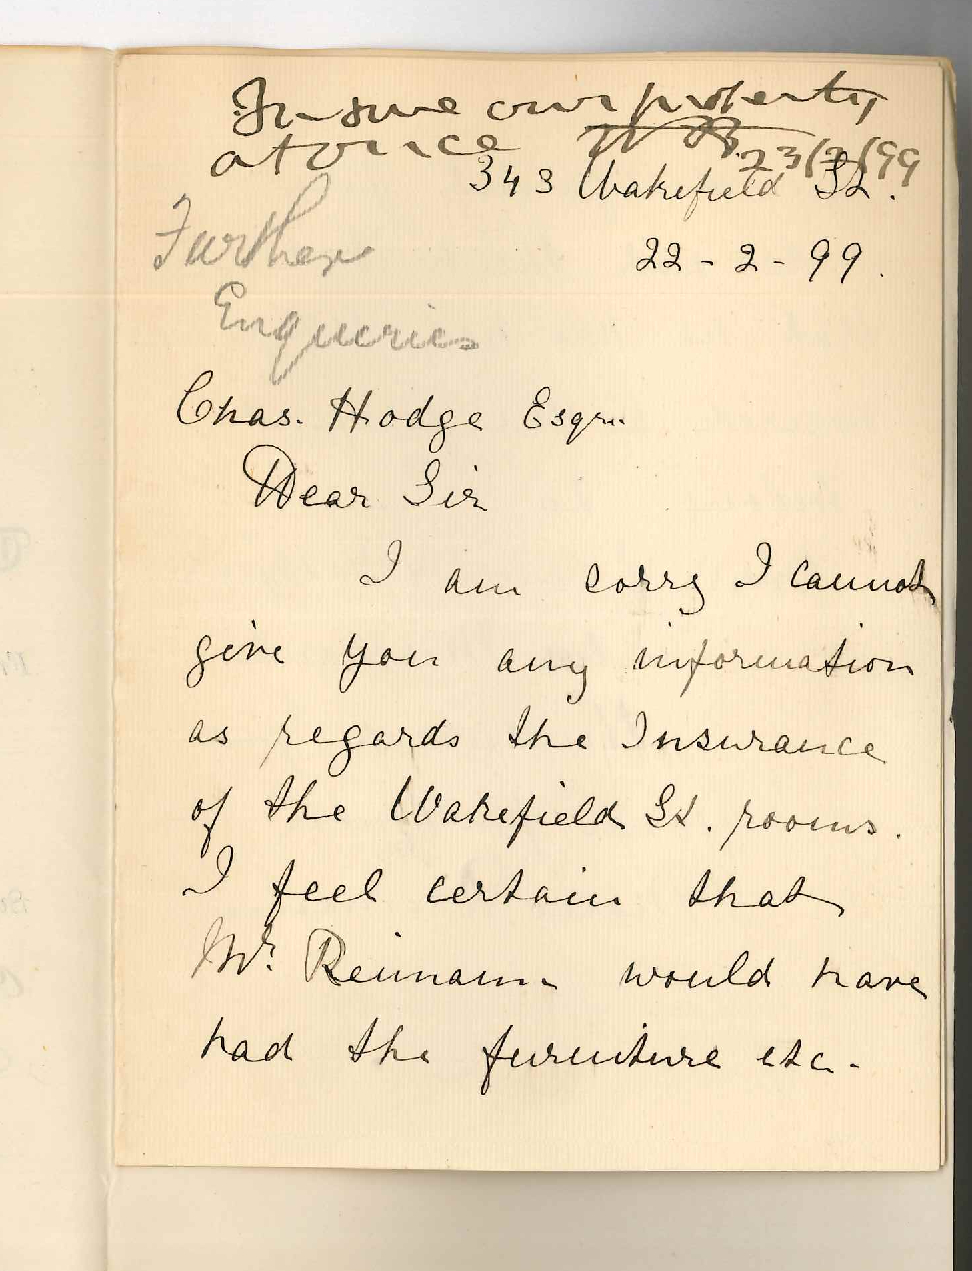 Insure our property
at once WB. 23/2/99
343 Wakefield St.
22-2-99.
Further
Enqueries
Chas. Hodge Esqr.
Dear Sir
I am sorry I cannot
give you any information
as regards the Insurance
of the Wakefield St. rooms.
I feel certain that
Mr. Reimann would have
had the furniture etc.